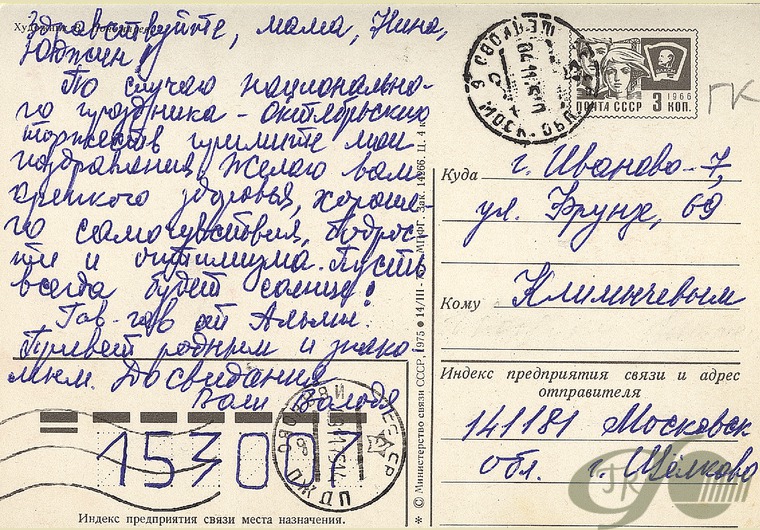 Здравствуйте, мама, Нина,
Юджин!
По случаю национально-
го праздника - октябрьских
торжеств примите мои
поздравления. Желаю вам
крепкого здоровья, хороше-
го самочувствия, бодрос-
ти и оптимизма. Пусть
всегда будет солнце!
Гав-гав от Альмы!
Привет родным и знако-
мым. До свидания
Ваш Володя
153007
Индекс предприятия связи места назначения.
* © Министерство связи СССР, 1975 ● 14/III - Зак. 14266. Ц. 4 к.
ПОЧТА СССР 3 КОП.
1966
ГК
Куда г. Иваново-7,
ул. Фрунзе, 69
Кому Климычевым
Индекс предприятия связи и адрес
отправителя
141181 Московск
обл. г. Щёлково